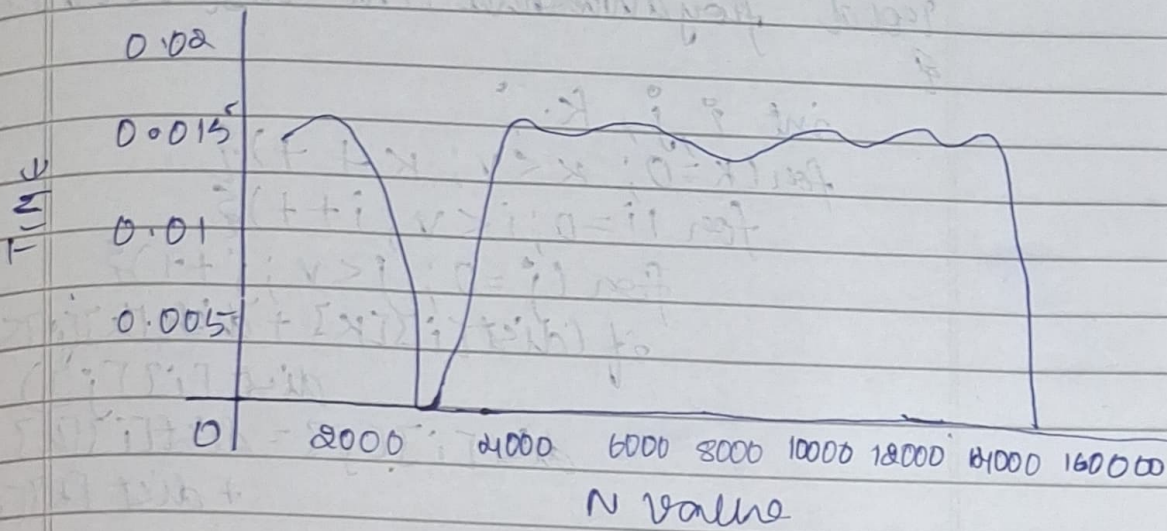 0.02
0.015
TIME
0.01
0.005
0
2000 4000 6000 8000 10000 12000 14000 160000
N value